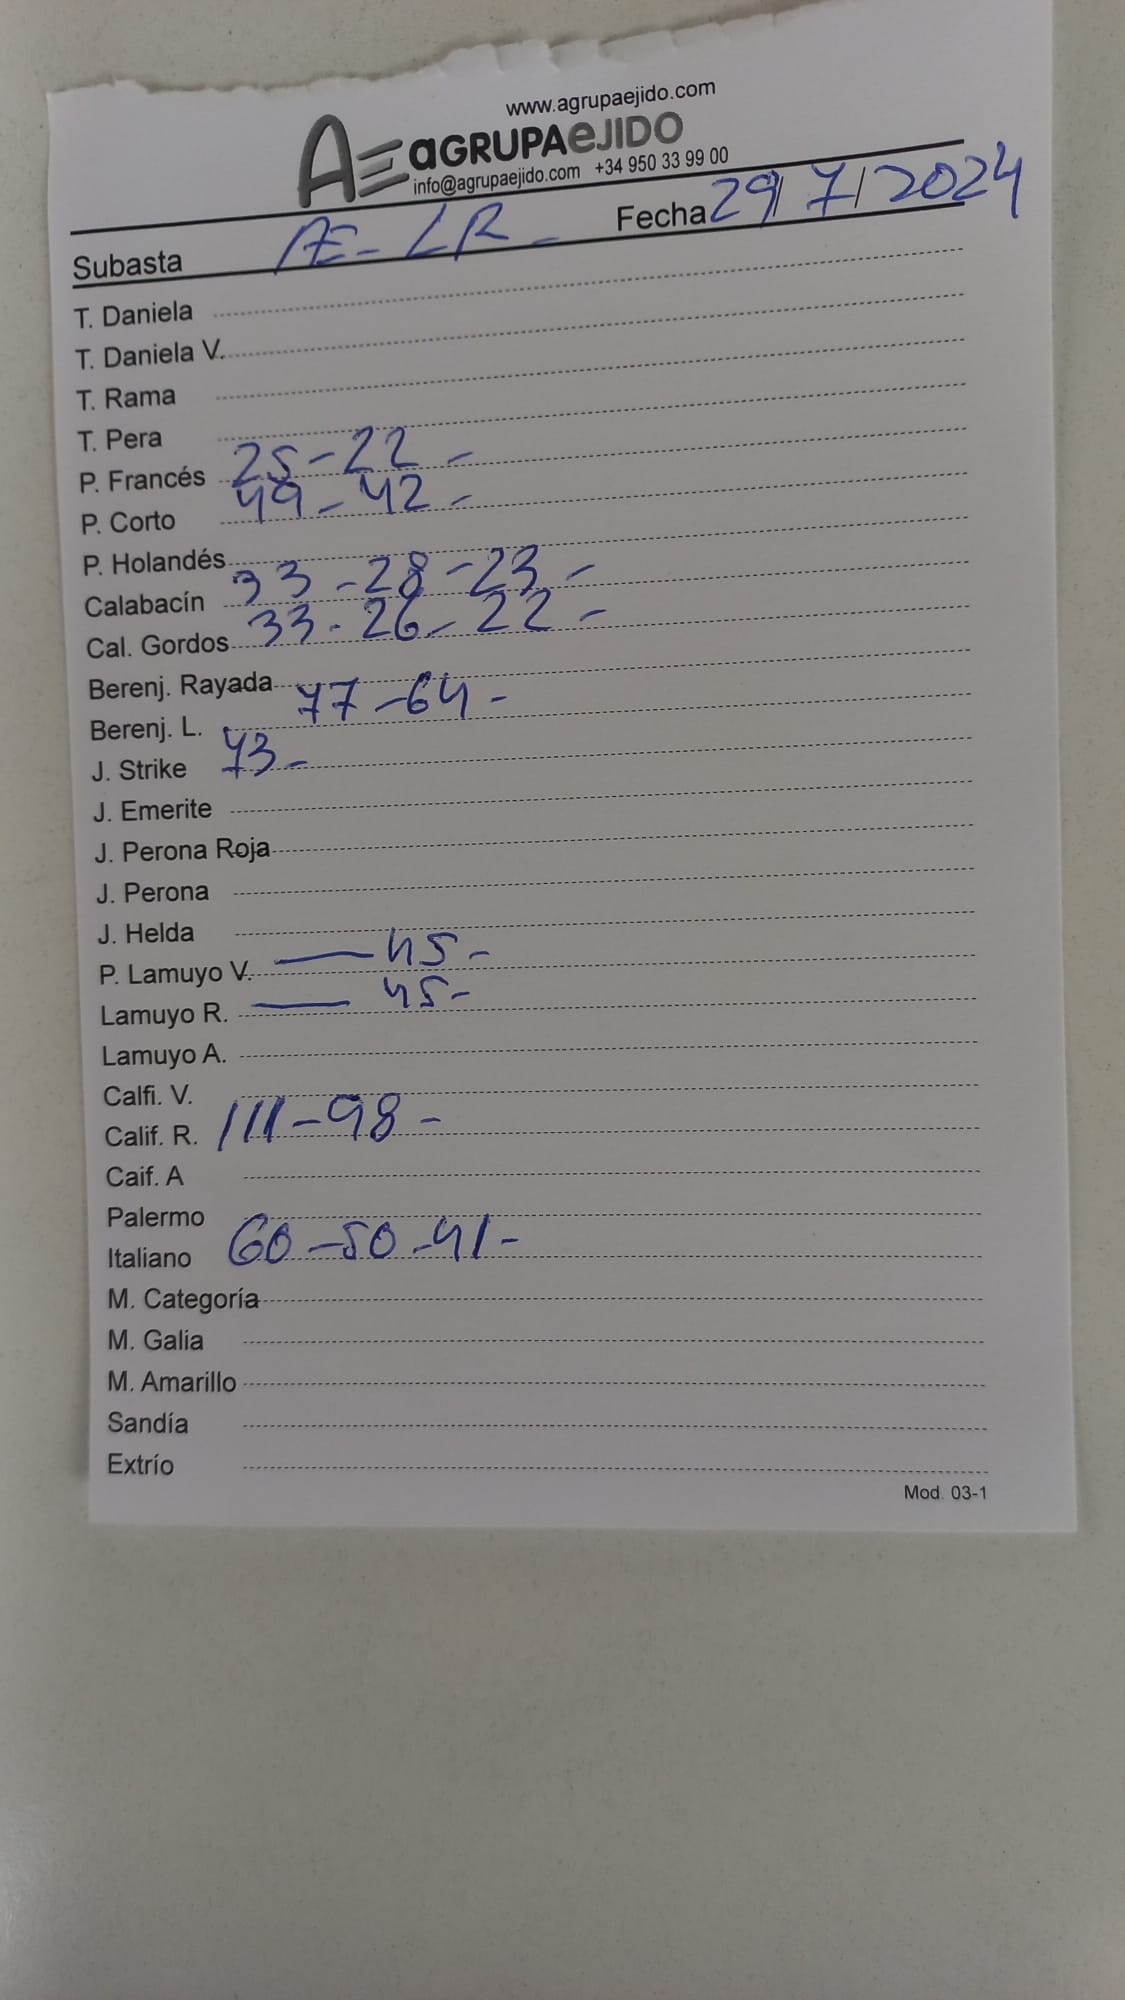 www.agrupaejido.com
AE aGRUPAeJIDO
info@agrupaejido.com +34 950 33 99 00
Subasta AE - LR - Fecha 29/7/2024
T. Daniela
T. Daniela V.
T. Rama
T. Pera
P. Francés 25 - 22 -
P. Corto 49 - 42 -
P. Holandés
Calabacín 33 - 28 - 23 -
Cal. Gordos 33 - 26 - 22 -
Berenj. Rayada
Berenj. L. 77 - 64 -
J. Strike 43 -
J. Emerite
J. Perona Roja
J. Perona
J. Helda
P. Lamuyo V. — 45 -
Lamuyo R. — 45 -
Lamuyo A.
Calfi. V.
Calif. R. 111 - 98 -
Caif. A
Palermo
Italiano 60 - 50 - 41 -
M. Categoría
M. Galia
M. Amarillo
Sandía
Extrío
Mod. 03-1